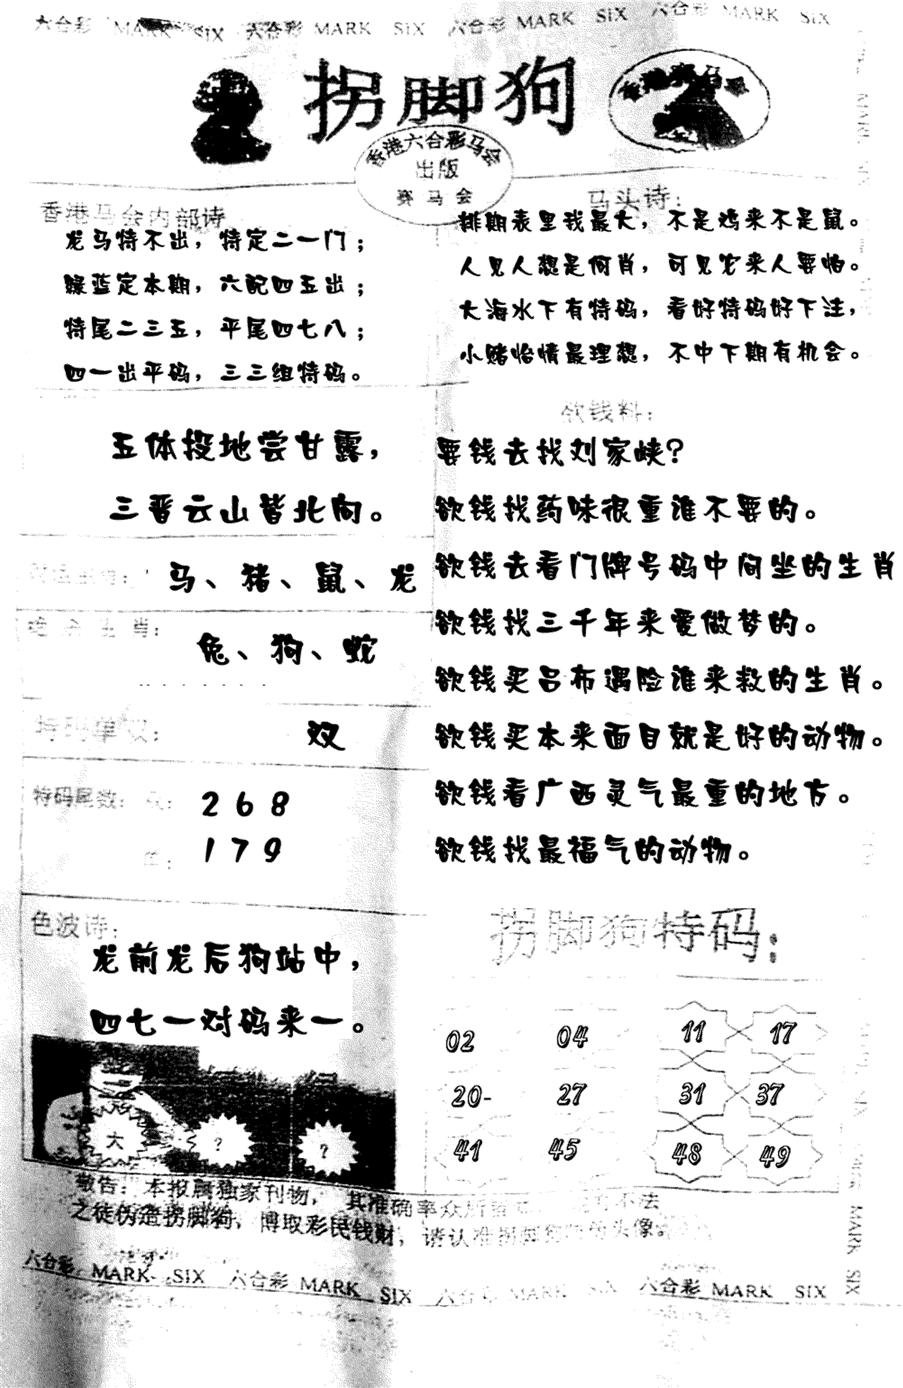 六合彩 MARK SIX 六合彩 MARK SIX 六合彩 MARK SIX 六合彩 MARK SIX
拐脚狗
香港赛马会
香港六合彩马会
出版
赛马会
香港马会内部诗
龙马特不出，特定二一门；
绿蓝定本期，六配四五出；
特尾二三五，平尾四七八；
四一出平码，三三组特码。
马头诗：
排期表里我最大，不是鸡来不是鼠。
人见人想是何肖，可见它来人要怕。
大海水下有特码，看好特码好下注，
小赌怡情最理想，不中下期有机会。
五体投地尝甘露，
三晋云山皆北向。
马、猪、鼠、龙
绝杀生肖：
兔、狗、蛇
特码单双：
双
特码尾数：双：
2 6 8
单：
1 7 9
欲钱料：
要钱去找刘家峡？
欲钱找药味很重谁不要的。
欲钱去看门牌号码中间坐的生肖
欲钱找三千年来爱做梦的。
欲钱买吕布遇险谁来救的生肖。
欲钱买本来面目就是好的动物。
欲钱看广西灵气最重的地方。
欲钱找最福气的动物。
色波诗：
龙前龙后狗站中，
四七一对码来一。
大 ? ?
拐脚狗特码：
02 04 11 17
20- 27 31 37
41 45 48 49
敬告：本报属独家刊物，其准确率众所
之徒伪造拐脚狗，博取彩民钱财，请认准拐脚狗
六合彩 MARK SIX 六合彩 MARK SIX 六合彩 MARK SIX 六合彩 MARK SIX
MARK SIX